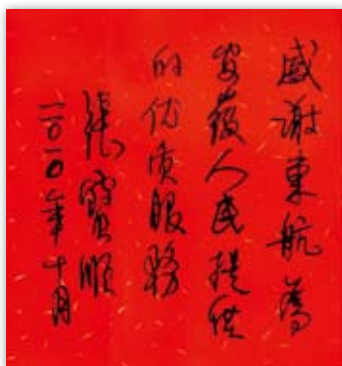 感谢東航為
安薇人民提供
的优质服務
張寶順
二〇一〇年十月